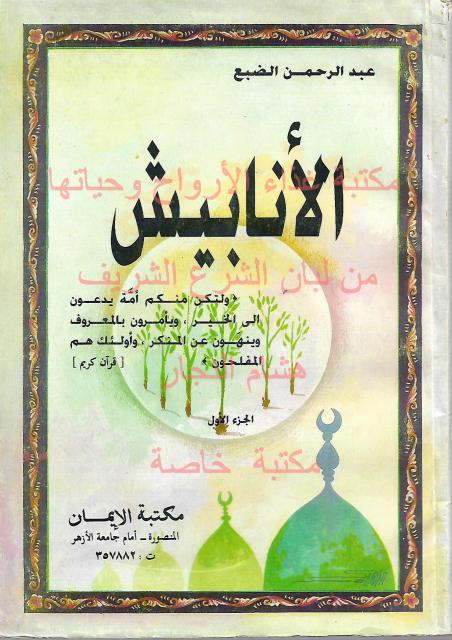 عبد الرحمن الضبع
مكتبة غذاء الأرواح وحياتها
الأنابيش
من لبان الشرع الشريف
﴿ ولتكن منكم أمة يدعون
إلى الخير ، ويأمرون بالمعروف
وينهون عن المنكر ، وأولئك هم
المفلحون ﴾ [ قرآن كريم ]
هشام النجار
الجزء الأول
مكتبة خاصة
مكتبة الإيمان
المنصورة - أمام جامعة الأزهر
ت : ٣٥٧٨٨٢